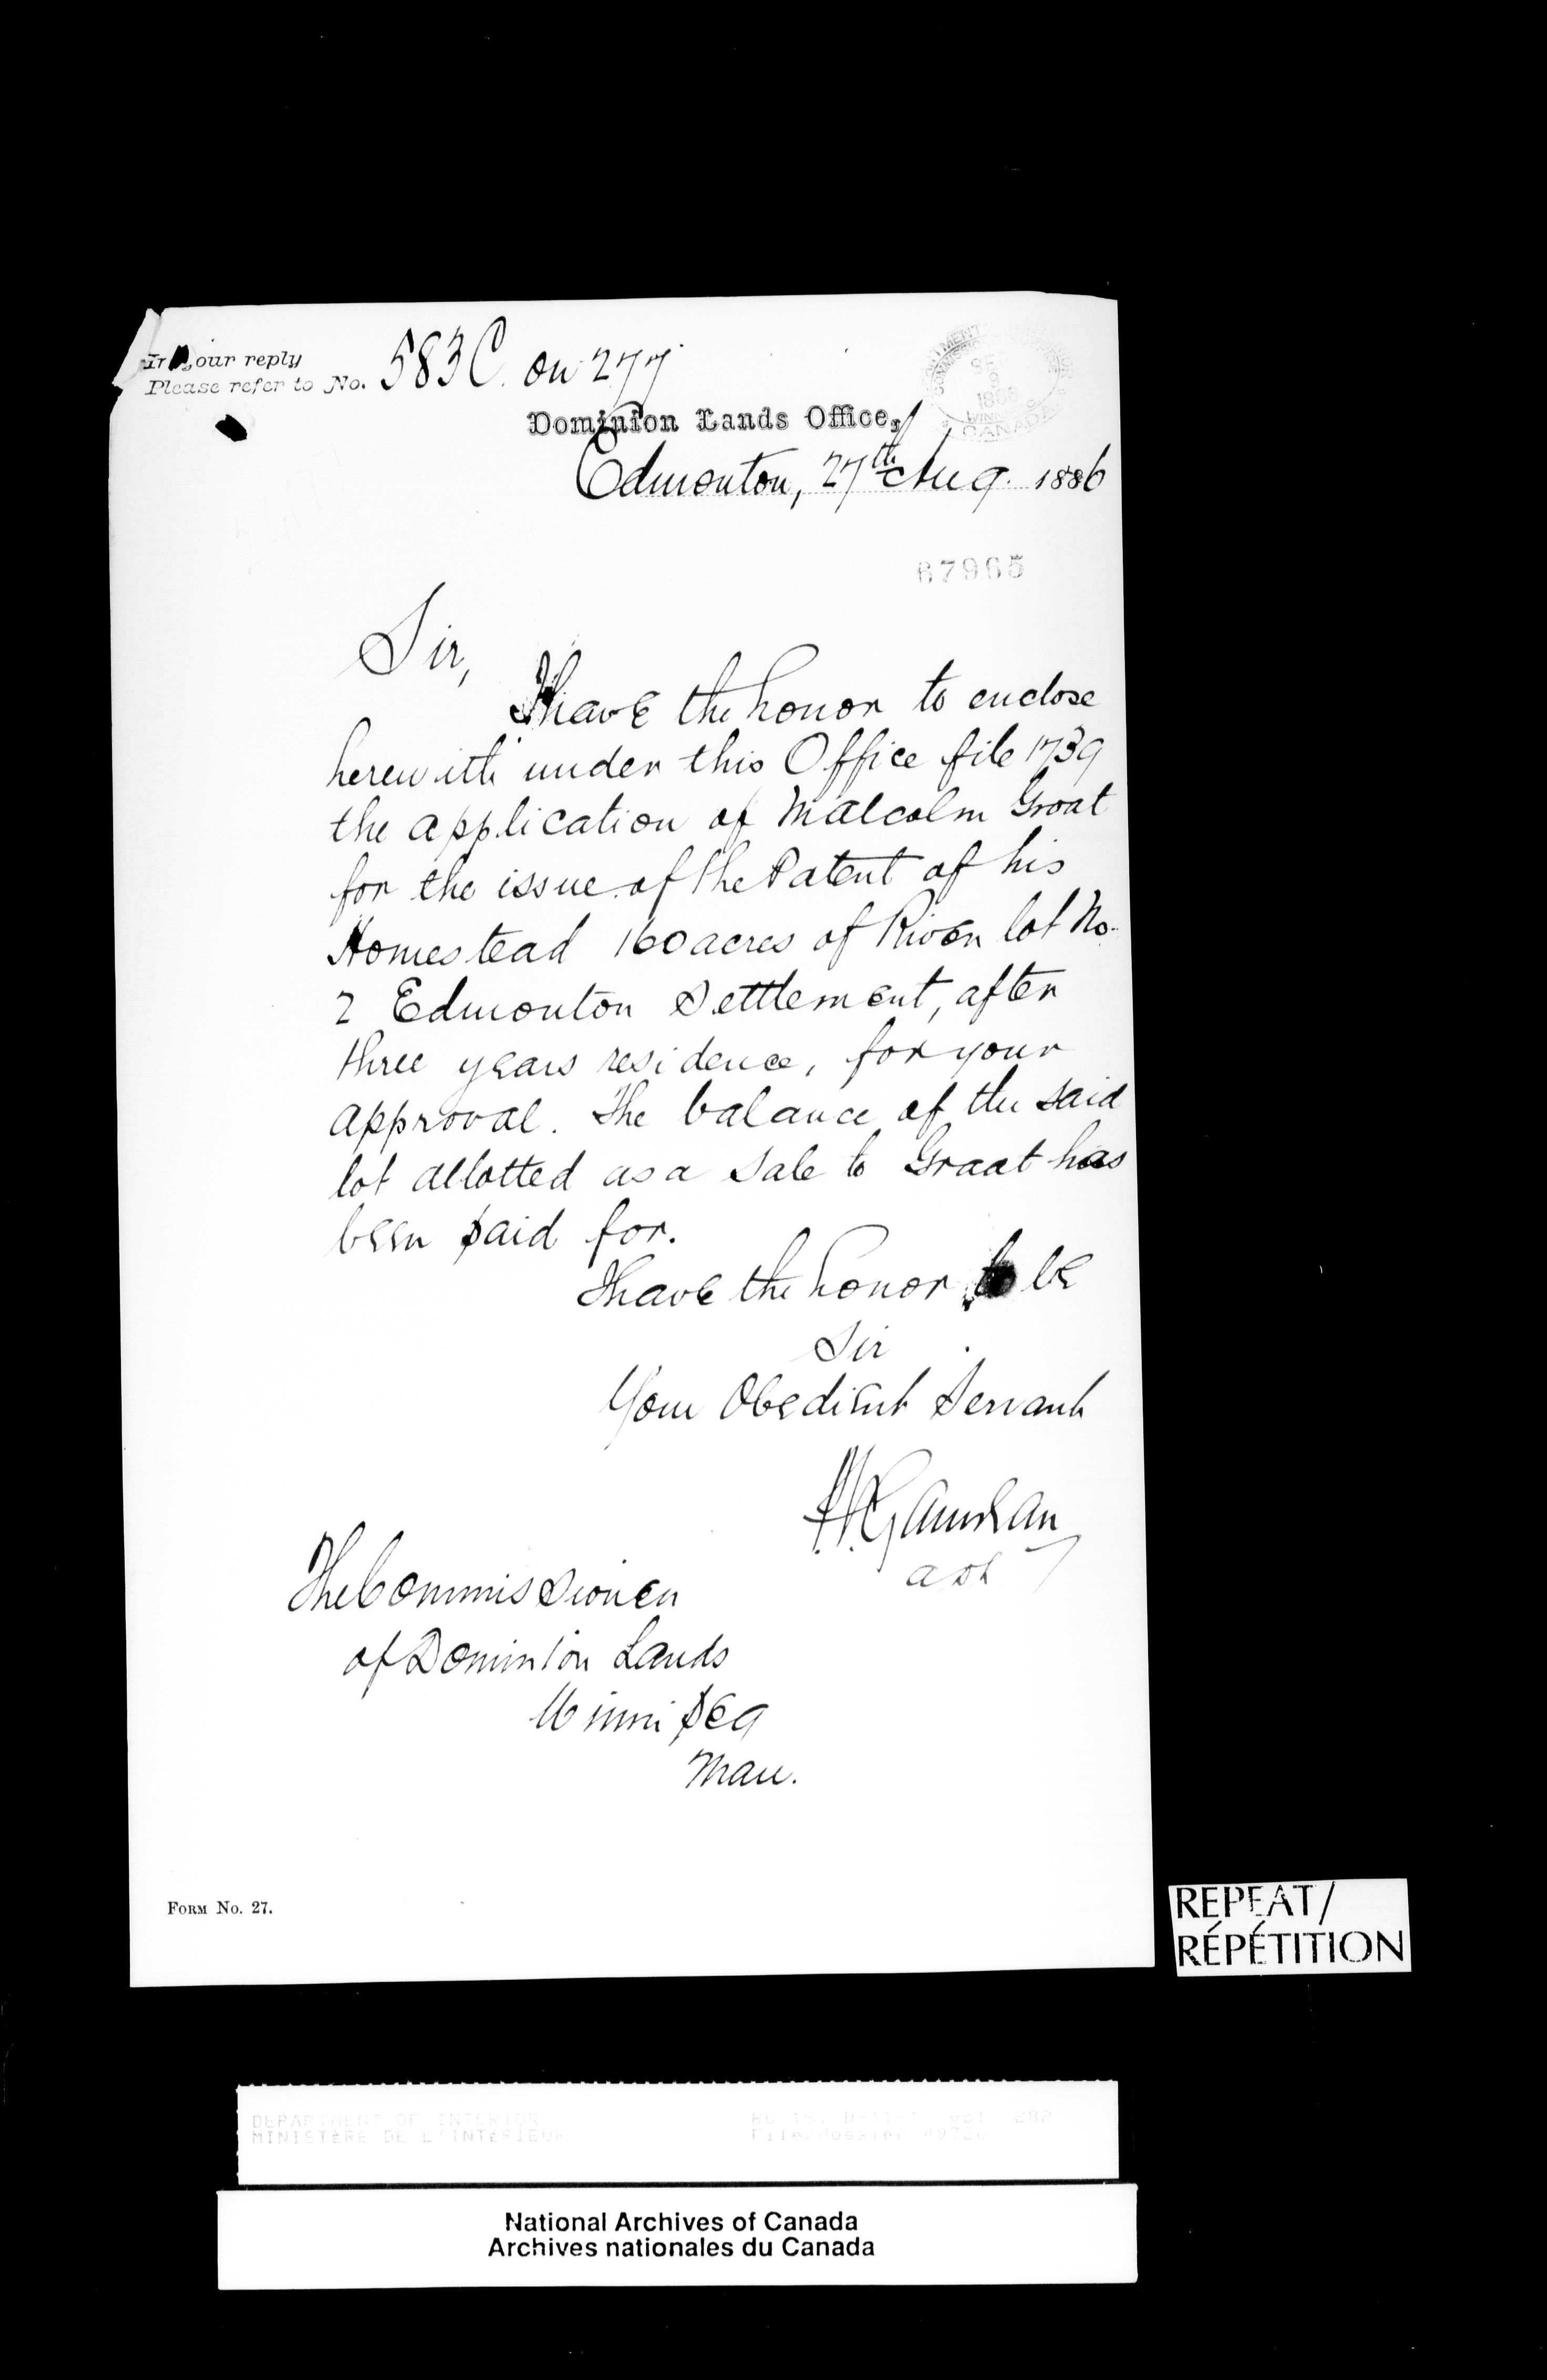 In your reply
Please refer to No. 583 C. on 277
Dominion Lands Office,
Edmonton, 27th Aug. 1886
SEP
1886
CANADA
67965
Sir,
I have the honor to enclose
herewith under this Office file 1739
the application of Malcolm Groat
for the issue of the Patent of his
Homestead 160 acres of River lot No.
2 Edmonton Settlement, after
three years residence, for your
approval. The balance of the said
lot allotted as a sale to Groat has
been paid for.
I have the honor to be
Sir
Your Obedient Servant
The Commissioner
of Dominion Lands
Winnipeg
Man.
Form No. 27.
REPEAT/
RÉPÉTITION
DEPARTMENT OF INTERIOR
MINISTÈRE DE L'INTÉRIEUR
National Archives of Canada
Archives nationales du Canada